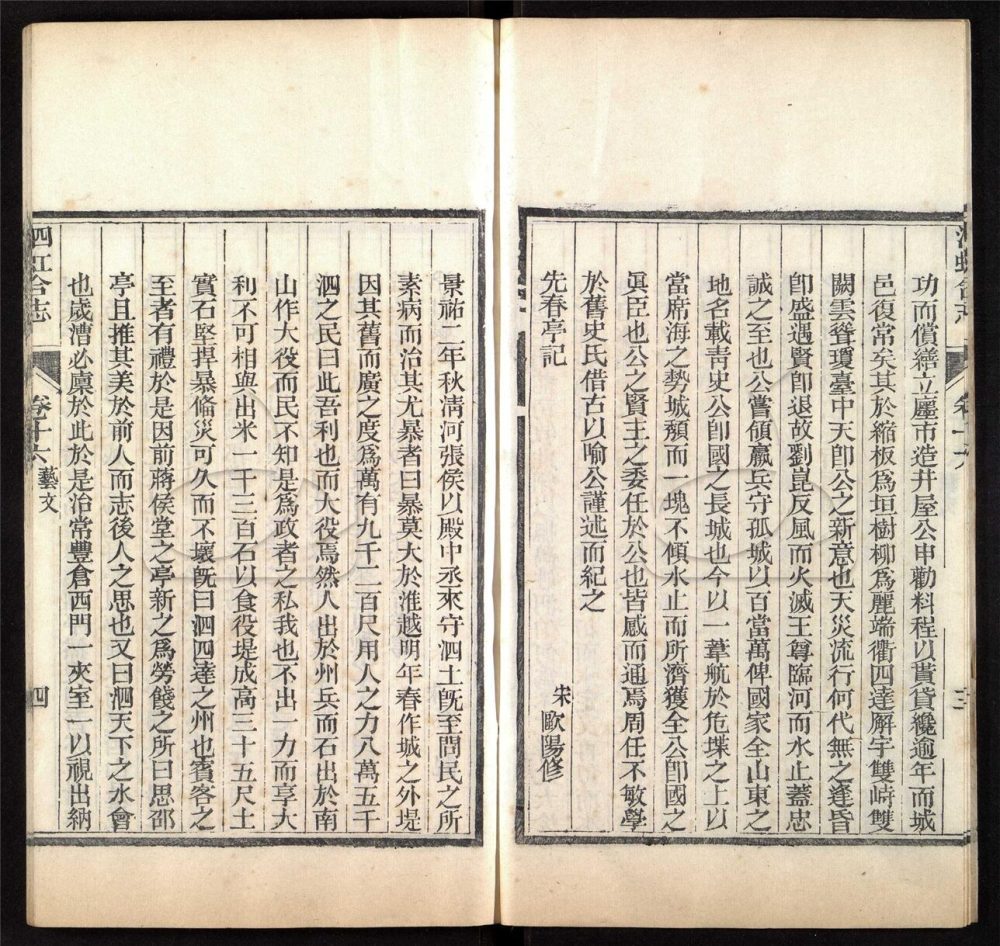 功而償繕立廛市造井屋公申勸料程以貰貸纔逾年而城
邑復常矣其於縮板爲垣樹柳爲麗端衢四達廨宇雙峙雙
闕雲聳瓊臺中天卽公之新意也天災流行何代無之逢昏
卽盛遇賢卽退故劉崑反風而火滅王尊臨河而水止蓋忠
誠之至也公嘗領羸兵守孤城以百當萬俾國家全山東之
地名載靑史公卽國之長城也今以一葦航於危堞之上以
當席海之勢城頽而一塊不傾水止而所濟獲全公卽國之
眞臣也公之賢主之委任於公也皆感而通焉周任不敏學
於舊史氏借古以喻公謹述而紀之
先春亭記
宋 歐陽修
景祐二年秋淸河張侯以殿中丞來守泗土旣至問民之所
素病而治其尤暴者曰暴莫大於淮越明年春作城之外堤
因其舊而廣之度爲萬有九千二百尺用人之力八萬五千
泗之民曰此吾利也而大役焉然人出於州兵而石出於南
山作大役而民不知是爲政者之私我也不出一力而享大
利不可相與出米一千三百石以食役堤成高三十五尺土
實石堅捍暴備災可久而不壞旣曰泗四達之州也賓客之
至者有禮於是因前蔣侯堂之亭新之爲勞餞之所曰思邵
亭且推其美於前人而志後人之思也又曰泗天下之水會
也歲漕必廩於此於是治常豐倉西門一夾室一以視出納
泗虹合志
卷十六
藝文
四